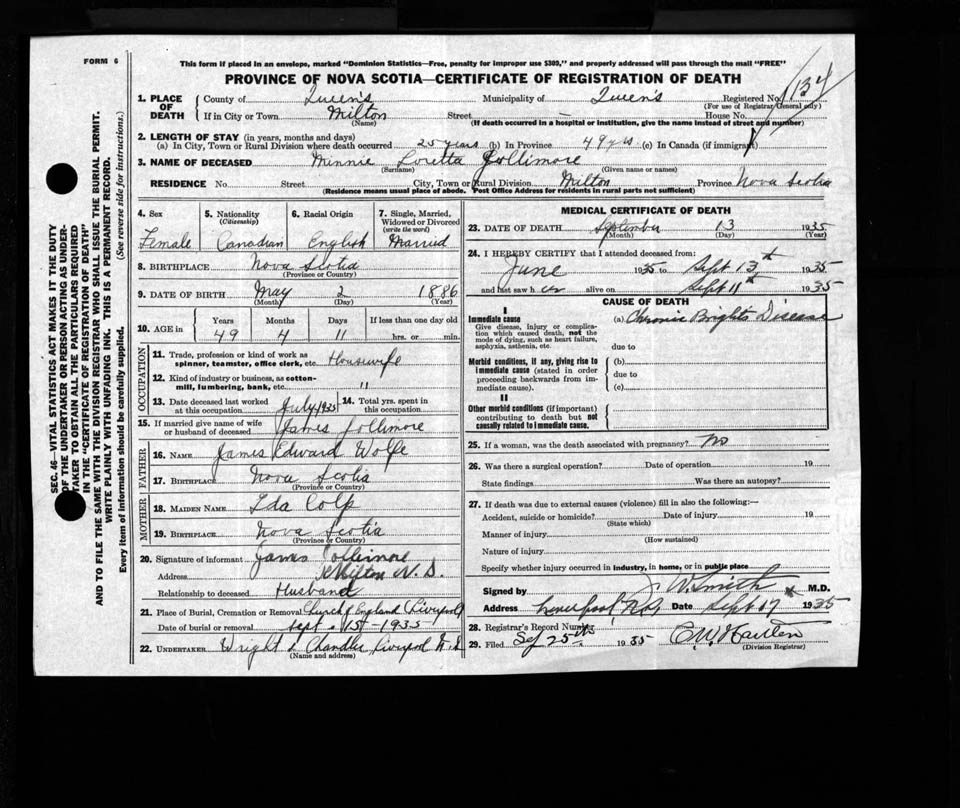 FORM 6
This form if placed in an envelope, marked "Dominion Statistics—Free, penalty for improper use $300," and properly addressed will pass through the mail "FREE"
PROVINCE OF NOVA SCOTIA—CERTIFICATE OF REGISTRATION OF DEATH
1. PLACE OF DEATH County of Queen's Municipality of Queen's Registered No. 134
(For use of Registrar General only)
If in City or Town Milton Street — House No.
(Name) (If death occurred in a hospital or institution, give the name instead of street and number)
2. LENGTH OF STAY (in years, months and days)
(a) In City, Town or Rural Division where death occurred 25 years (b) In Province 49 yrs (c) In Canada (if immigrant)
3. NAME OF DECEASED Minnie Loretta Jollimore
(Surname) (Given name or names)
RESIDENCE No. Street City, Town or Rural Division Milton Province Nova Scotia
(Residence means usual place of abode. Post Office Address for residents in rural parts not sufficient)
4. Sex Female
5. Nationality (Citizenship) Canadian
6. Racial Origin English
7. Single, Married, Widowed or Divorced (write the word) Married
8. BIRTHPLACE Nova Scotia
(Province or Country)
9. DATE OF BIRTH May 2 1886
(Month) (Day) (Year)
10. AGE in Years Months Days If less than one day old
49 4 11 hrs. or min.
OCCUPATION
11. Trade, profession or kind of work as spinner, teamster, office clerk, etc. Housewife
12. Kind of industry or business, as cotton-mill, lumbering, bank, etc. "
13. Date deceased last worked at this occupation July 1935 14. Total yrs. spent in this occupation
15. If married give name of wife or husband of deceased James Jollimore
FATHER
16. NAME James Edward Wolfe
17. BIRTHPLACE Nova Scotia
(Province or Country)
MOTHER
18. MAIDEN NAME Ida Colp
19. BIRTHPLACE Nova Scotia
(Province or Country)
20. Signature of informant James Jollimore
Address Milton N.S.
Relationship to deceased Husband
21. Place of Burial, Cremation or Removal Church of England (Liverpool)
Date of burial or removal Sept. 15-1935
22. UNDERTAKER Wright & Chandler Liverpool N.S
(Name and address)
MEDICAL CERTIFICATE OF DEATH
23. DATE OF DEATH September 13 1935
(Month) (Day) (Year)
24. I HEREBY CERTIFY that I attended deceased from:
June 1935 to Sept 13th 1935
and last saw h er alive on Sept 11th 1935
CAUSE OF DEATH
I
Immediate cause (a) Chronic Brights Disease
Give disease, injury or complication which caused death, not the mode of dying, such as heart failure, asphyxia, asthenia, etc.
due to
Morbid conditions, if any, giving rise to immediate cause (stated in order proceeding backwards from immediate cause).
(b)
due to
(c)
II
Other morbid conditions (if important) contributing to death but not causally related to immediate cause.
25. If a woman, was the death associated with pregnancy? No
26. Was there a surgical operation? Date of operation 19
State findings Was there an autopsy?
27. If death was due to external causes (violence) fill in also the following:—
Accident, suicide or homicide? Date of injury 19
(State which)
Manner of injury
(How sustained)
Nature of injury
Specify whether injury occurred in industry, in home, or in public place
Signed by J. W. Smith M.D.
Address Liverpool, N.S. Date Sept 17 1935
28. Registrar's Record Number
29. Filed Sep 25th 1935
(Division Registrar)
SEC. 46—VITAL STATISTICS ACT MAKES IT THE DUTY
OF THE UNDERTAKER OR PERSON ACTING AS UNDER-
TAKER TO OBTAIN ALL THE PARTICULARS REQUIRED
IN THE "CERTIFICATE OF REGISTRATION OF DEATH"
AND TO FILE THE SAME WITH THE DIVISION REGISTRAR WHO SHALL ISSUE THE BURIAL PERMIT.
WRITE PLAINLY WITH UNFADING INK. THIS IS A PERMANENT RECORD.
Every item of information should be carefully supplied. (See reverse side for instructions.)